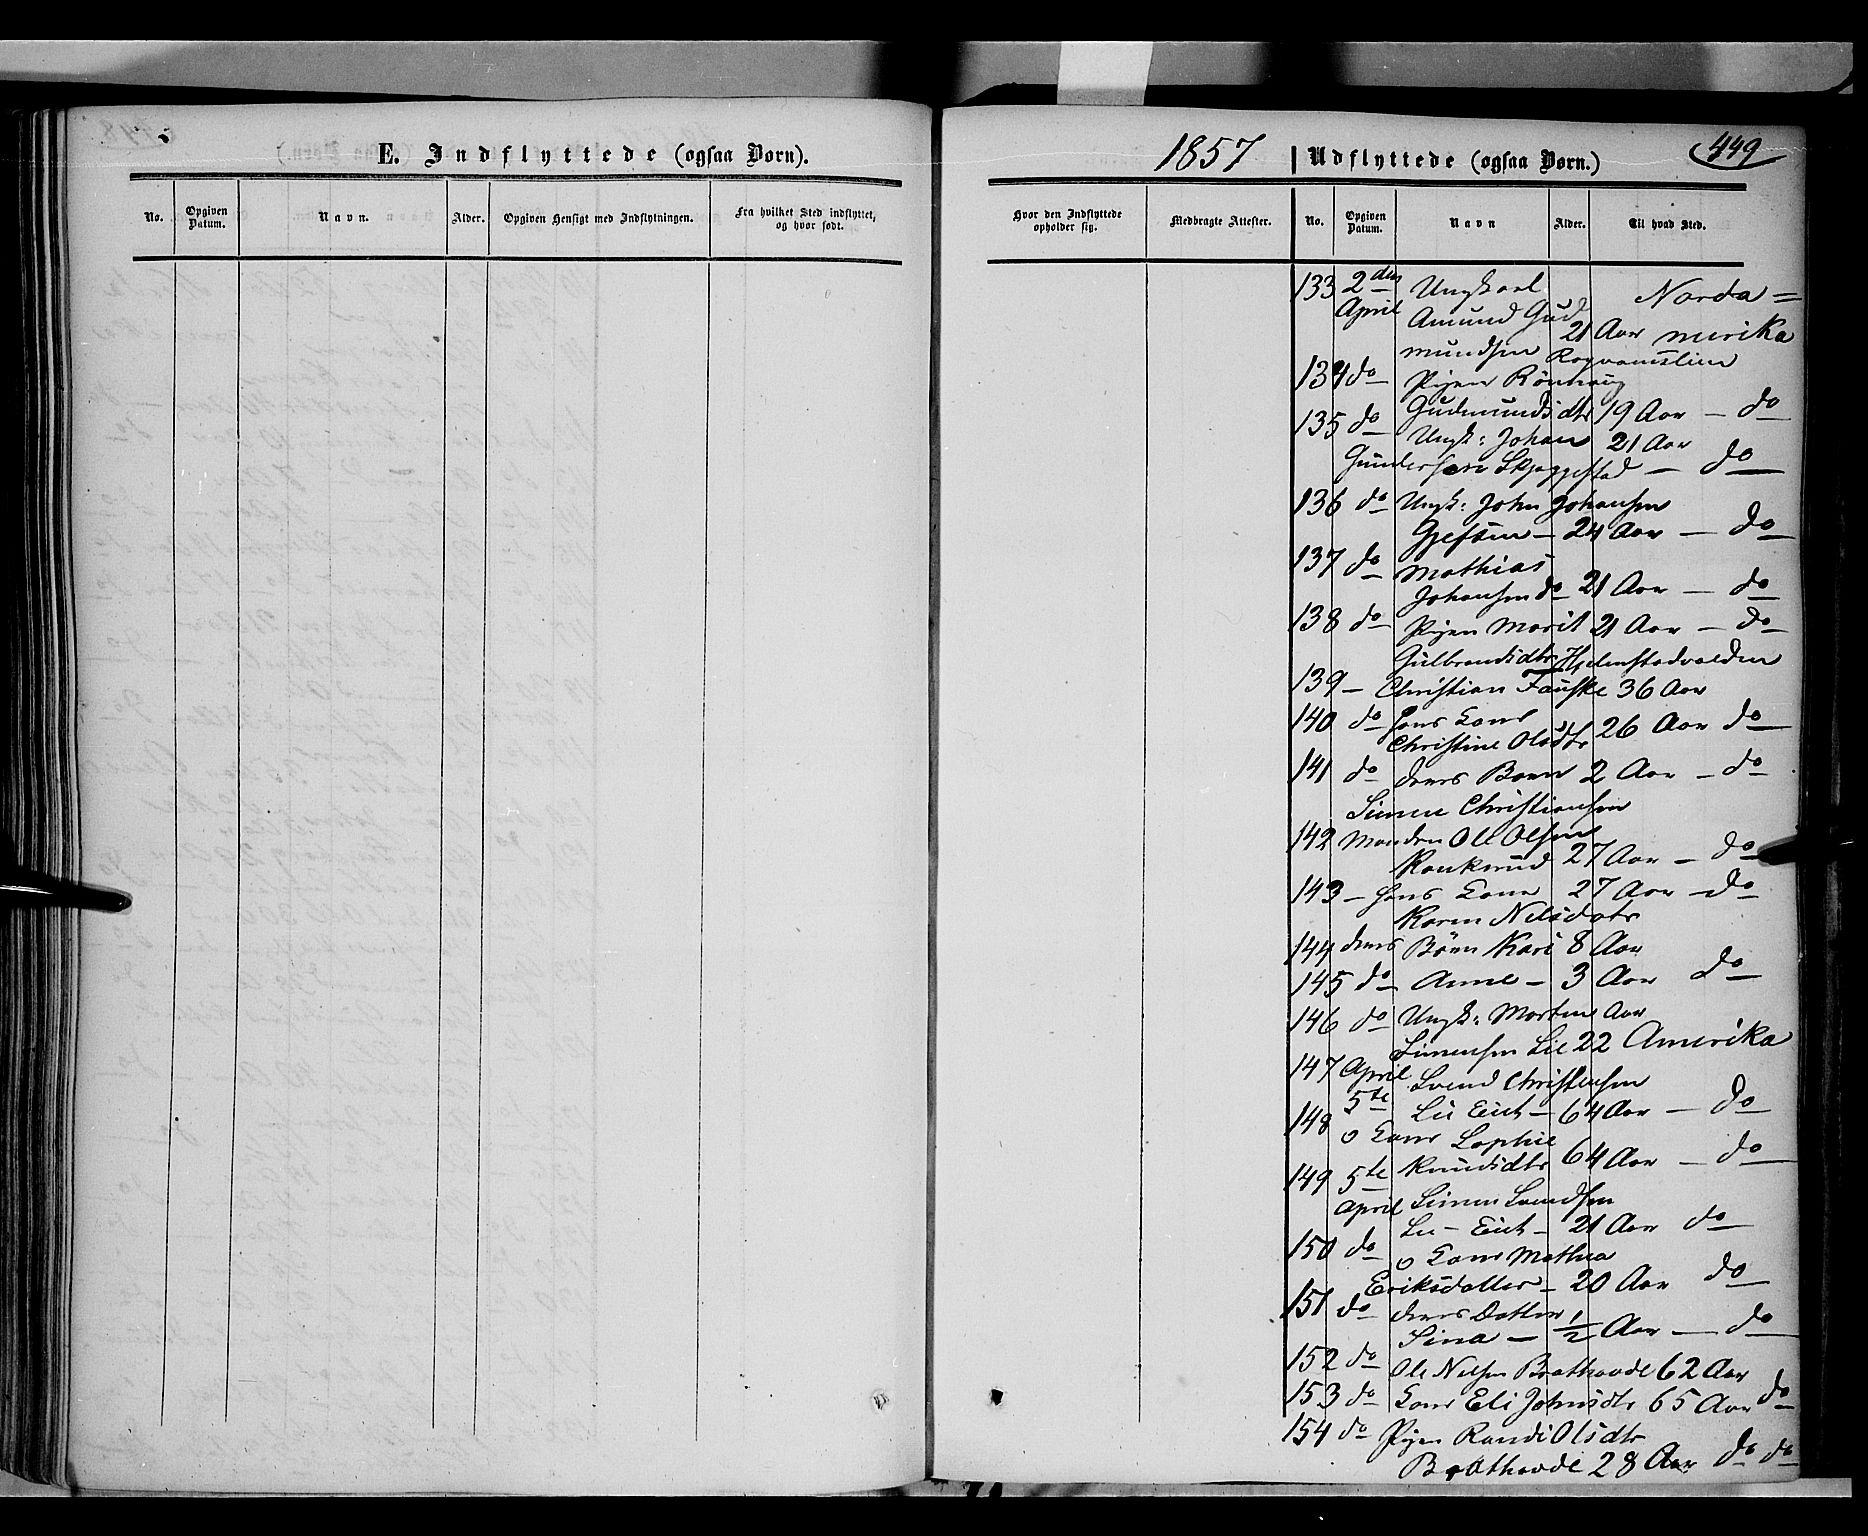 E. Indflyttede (ogsaa Børn).
No.
Opgiven Datum.
Navn.
Alder.
Opgiven Hensigt med Indflytningen.
Fra hvilket Sted indflyttet, og hvor født.
1857
Udflyttede (ogsaa Børn.)
449
Hvor den Indflyttede opholder sig.
Medbragte Attester.
No.
Opgiven Datum.
Navn
Alder.
Til hvad Sted.
133 2den Ungkarl Norda=
April Amund Gud
mundsen 21 Aar merika
134 do Pigen Rönnaug
Gudmundsdtr 19 Aar - do
135 do Ungk: Johan 21 Aar
Gundersen Skjeggestad - do
136 do Ungk: John Johansen
Gjefsen - 24 Aar - do
137 do Mathias
Johansen do 21 Aar - do
138 do Pigen Marit 21 Aar - do
Gulbrandsdtr Hjelmstadvolden
139 - Christian Fauske 36 Aar
140 do hans Kone
Christine Olsdtr 26 Aar do
141 do deres Barn 2 Aar - do
Simen Christiansen
142 Manden Ole Olsen
Kankerud 27 Aar - do
143 - hans Kone 27 Aar - do
Karen Nelsdatr
144 deres Börn Kari 8 Aar
145 do Anne - 3 Aar do
146 do Ungk: Morten Aar
Simensen Lie 22 Amerika
147 April Svend Christensen
5te Lie Eiet - 64 Aar - do
148 o Kone Sophie
Knudsdtr 64 Aar - do
149 5te
April Simen Svendsen
Lie - Eiet - 21 Aar do
150 do o Kone Mathea
Eriksdatter - 20 Aar do
151 do deres Datter
Sina - 1/2 Aar - do
152 do Ole Nelsen Brathovde 62 Aar
153 do Kone Eli Johnsdtr 65 Aar do
154 do Pigen Randi Olsdtr
Brathovde 28 Aar do do